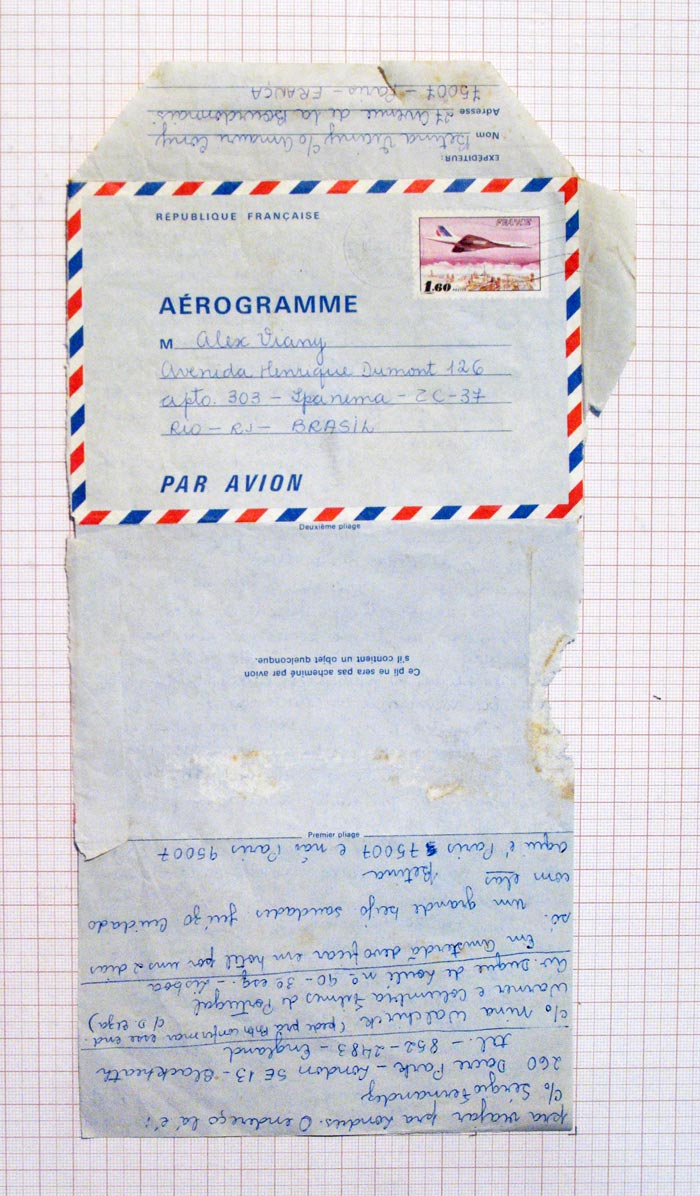 EXPÉDITEUR:
Nom Betina Viany c/o Amaury Cony
Adresse 27 Avenue de la Bourdonnais
75007 - Paris - FRANÇA
RÉPUBLIQUE FRANÇAISE
FRANCE
1.60
AÉROGRAMME
M Alex Viany
Avenida Henrique Dumont 126
apto. 303 - Ipanema - ZC-37
RIO - RJ - BRASIL
PAR AVION
Deuxième pliage
Ce pli ne sera pas acheminé par avion
s'il contient un objet quelconque.
Premier pliage
pra viajar pra Londres. O endereço lá é:
c/o Sérgio Fernandez
260 Dacre Park - London SE 13 - Blackheath
tel. - 852-2483 - England
c/o Nina (pedir prá confirmar esse end.
c/ D. Elza)
Warner e Columbia Filmes de Portugal
Av. Duque de Loulé nº 90 - 3º esq. - Lisboa
Em Amsterdã devo ficar em hotel por uns 2 dias
só.
Um grande beijo saudades juízo cuidado
com elas Betina
aqui é Paris 75007 e não Paris 95007